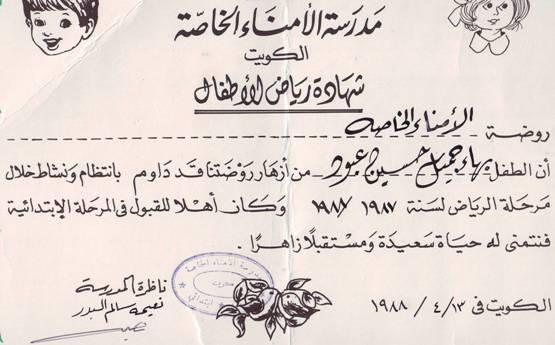 مدرسة الأمناء الخاصة
الكويت
شهادة رياض الأطفال
روضة الأمناء الخاصة
أن الطفل بهاء جميل حسين عبود من أزهار روضتنا قد داوم بانتظام ونشاط خلال
مرحلة الرياض لسنة ١٩٨٧ / ١٩٨٨ وكان أهلا للقبول في المرحلة الإبتدائية
فنتمنى له حياة سعيدة ومستقبلا زاهرا .
مدرسة الأمناء الخاصة
ابتدائي
ناظرة المدرسة
نعيمه سالم البدر
الكويت في ١٣ / ٤ / ١٩٨٨